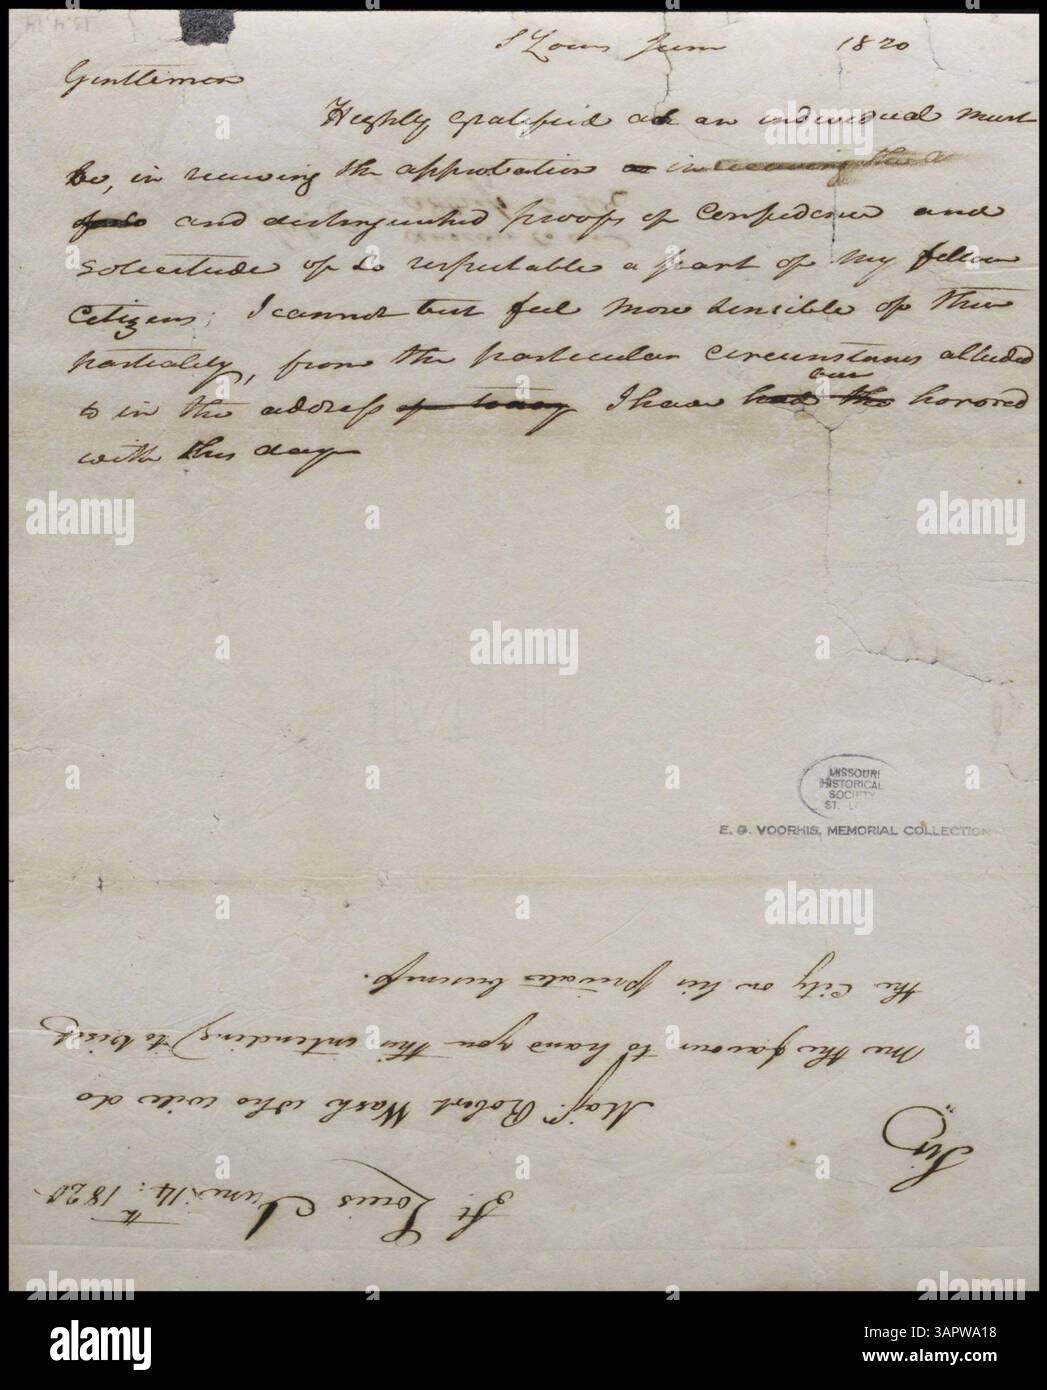 S Louis June 1820
Gentlemen
Highly gratified as an individual must
be, in receiving the approbation in receiving the a
and distinguished proofs of Confidence and
solicitude of So respectable a part of my fellow
Citizens; I cannot but feel more sensible of their
partiality, from the particular circumstances alluded
to in the address I have had the honored
with this day
MISSOURI
HISTORICAL
SOCIETY
ST. L
E. G. VOORHIS, MEMORIAL COLLECTION
St. Louis June 14th. 1820
Sir
Majr. Robert Wash who will do
me the favour to hand you this intending to visit
the City on his private business.
alamy
Image ID: 3APWA18
www.alamy.com